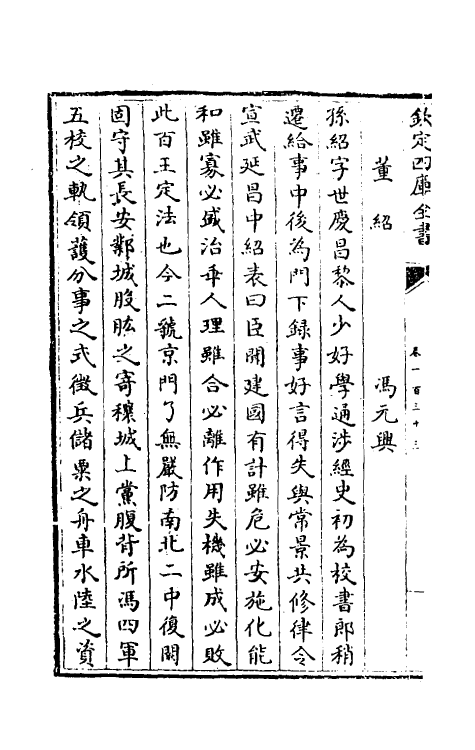 欽定四庫全書
卷一百三十三
董紹　馮元興
孫紹字世慶昌黎人少好學通涉經史初為校書郎稍
遷給事中後為門下録事好言得失與常景共修律令
宣武延昌中紹表曰臣聞建國有計雖危必安施化能
和雖寡必盛治乖人理雖合必離作用失機雖成必敗
此百王定法也今二虢京門了無嚴防南北二中復闕
固守其長安鄴城股肱之寄穰城上黨腹背所馮四軍
五校之軌領護分事之式徴兵儲粟之舟車水陸之資